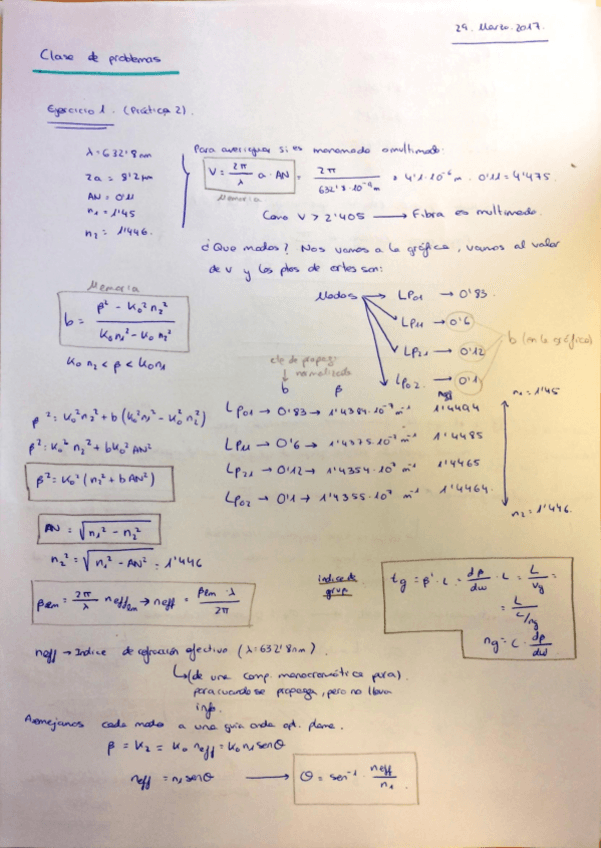 29. Marzo. 2017.
Clase de problemas
Ejercicio 1. (Práctica 2).
λ = 632'8 nm
2a = 8'2 μm
AN = 0'11
n₁ = 1'45
n₂ = 1'446.
Para averiguar si es monomodo o multimodo:
V = 2π/λ a · AN = 2π/632'8·10⁻⁹m · 4'1·10⁻⁶ m · 0'11 = 4'475.
Memoria
Como V > 2'405 → Fibra es multimodo.
¿Que modos? Nos vamos a la gráfica, vamos al valor
de V y los ptos de cortes son:
Memoria
b = β² - K₀² n₂² / K₀n₁² - K₀n₂²
K₀ n₂ < β < K₀n₁
Modos → LP₀₁ → 0'83.
LP₁₁ → 0'6
LP₂₁ → 0'12
LP₀₂ → 0'1
b (en la gráfica)
cte de propag.
normalizada
b β neff n₁ = 1'45
LP₀₁ → 0'83 → 1'4384·10⁷ m⁻¹ 1'4494
LP₁₁ → 0'6 → 1'4375·10⁷ m⁻¹ 1'4485
LP₂₁ → 0'12 → 1'4354·10⁷ m⁻¹ 1'4465
LP₀₂ → 0'1 → 1'4355·10⁷ m⁻¹ 1'4464.
n₂ = 1'446.
β² = K₀² n₂² + b (K₀² n₁² - K₀² n₂²)
β² = K₀² n₂² + b K₀² AN²
β² = K₀² (n₂² + b AN²)
AN = √n₁² - n₂²
n₂² = √n₁² - AN² = 1'446
βlm = 2π/λ nefflm → neff = βlm · λ / 2π
indice de
grupo
tg = β' · L = dβ/dω · L = L/vg =
= L / c/ng
ng = c · dβ/dω
neff → Indice de refracción efectivo (λ = 632'8 nm).
↳ (de una comp. monocromática pura).
para cuando se propaga, pero no lleva
info.
Asemejamos cada modo a una guía onda opt. plana.
β = Kz = K₀ neff = K₀ n₁ senθ
neff = n₁ senθ → θ = sen⁻¹ · neff/n₁.